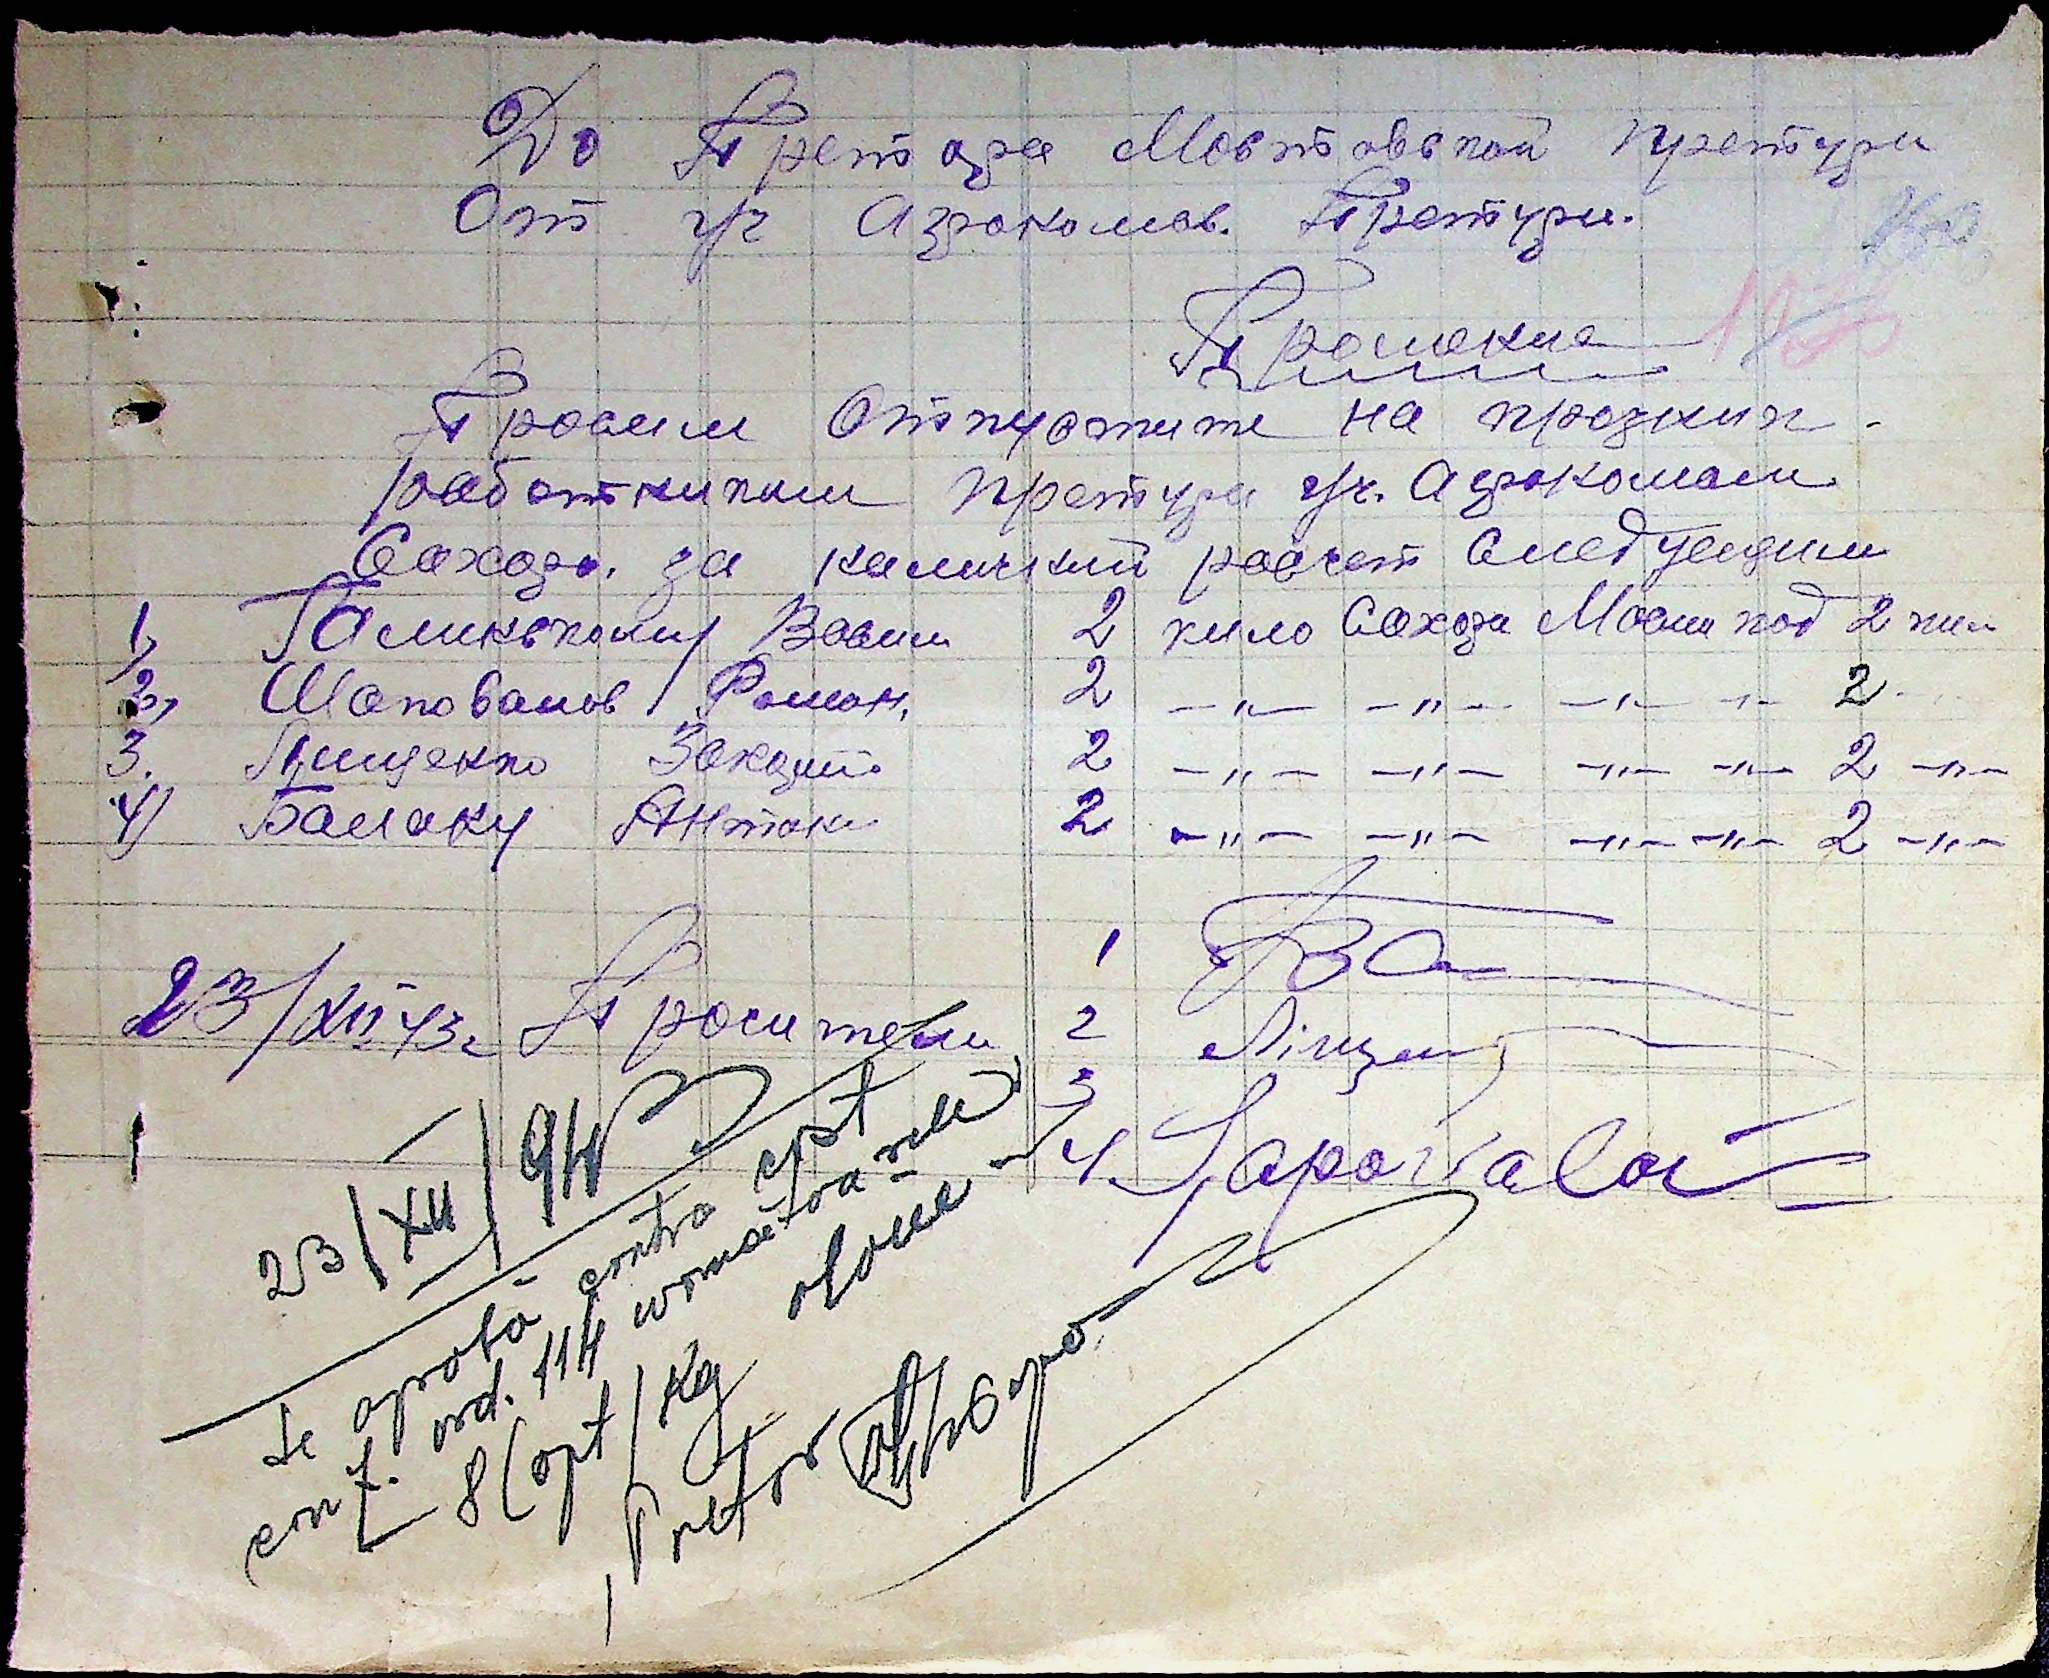 До Претора Мостовской претури
От уч Агрономов. Претури.
Прошение
Просим Отпустите на празник.
работникам претури уч. Агрономам
Сахара. за наличний расчет Следующим
1, Галинському Васил 2 кило Сахара Масла под 2 кил
2, Шаповалов Роман, 2 -„- -„- -„- -„- 2
3. Лищенко Захарий 2 -„- -„- -„- -„- 2 -„-
4) Балаку Антон 2 -„- -„- -„- -„- 2 -„-
23/XII 43г Просители 1
2 Ліщен
3
4. Șapovalov
23/XII/943
Se aprobă contra cost
conf. ord. 114 următoarele
8 (opt) Kg
Pretor